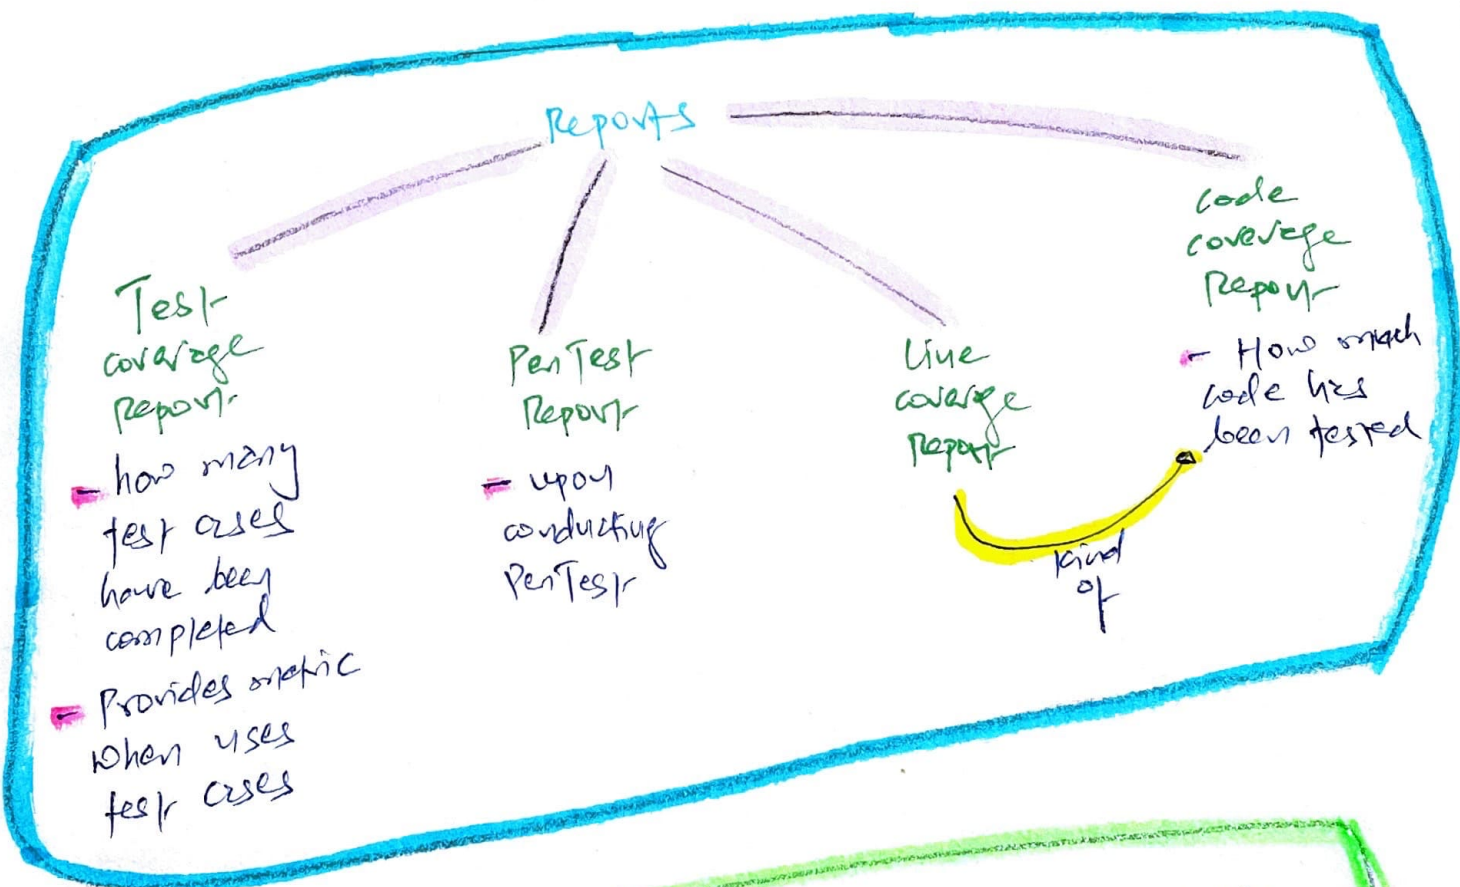 Reports
Test
coverage
Report
- how many
test cases
have been
completed
- Provides metric
when uses
test cases
PenTest
Report
- upon
conducting
PenTest
Line
coverage
Report
kind
of
code
coverage
Report
- How much
code has
been tested